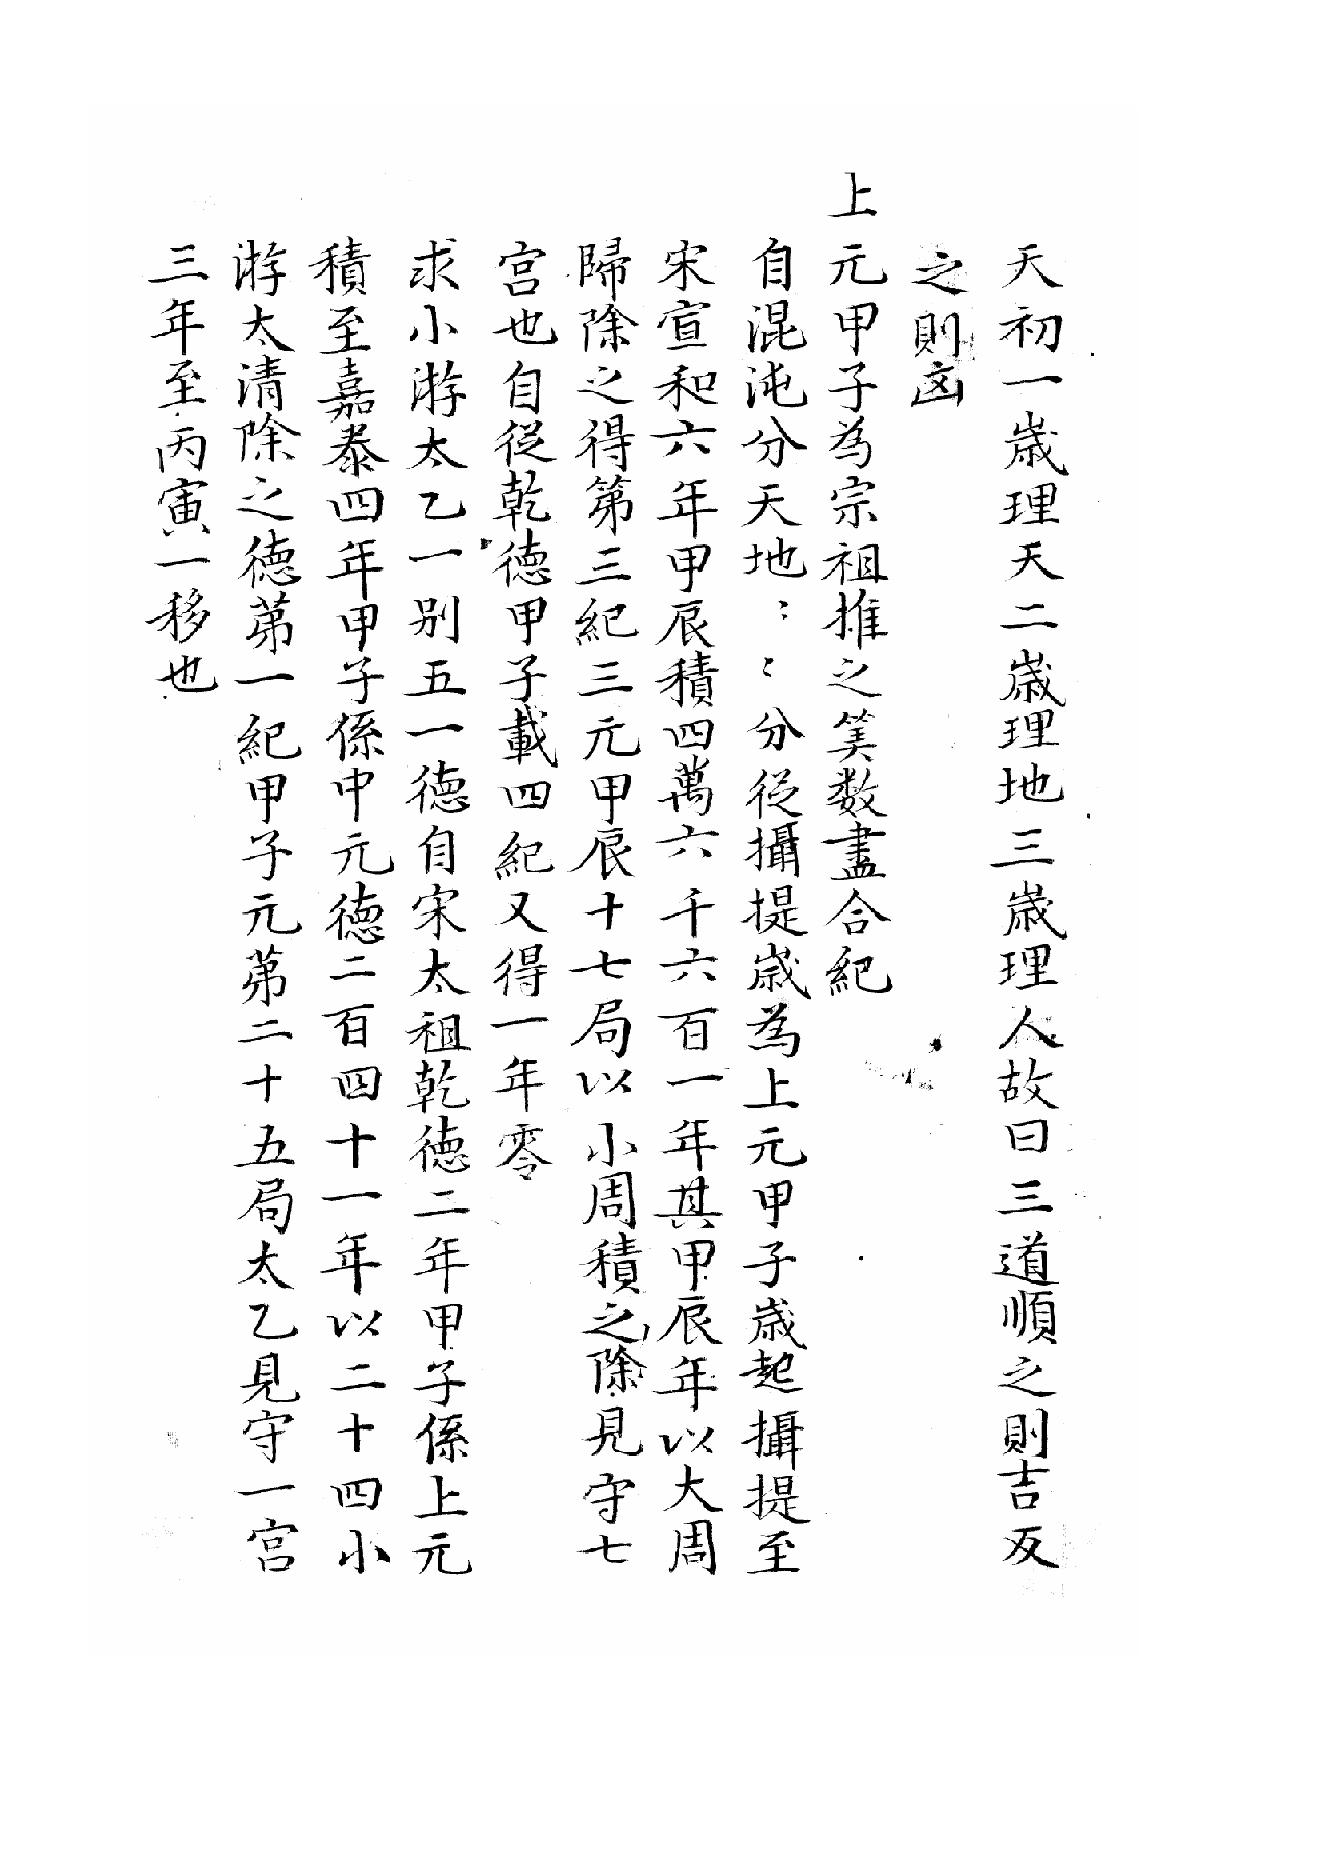 天初一歳理天二歳理地三歳理人故曰三道順之則吉反
之則凶
上元甲子為宗祖推之筭数盡合紀
自混沌分天地〻〻分從攝提歳為上元甲子歳起攝提至
宋宣和六年甲辰積四萬六千六百一年其甲辰年以大周
歸除之得第三紀三元甲辰十七局以小周積之除見守七
宮也自從乾德甲子載四紀又得一年零
求小游太乙一別五一德自宋太祖乾德二年甲子係上元
積至嘉泰四年甲子係中元德二百四十一年以二十四小
游太清除之德苐一紀甲子元苐二十五局太乙見守一宮
三年至丙寅一移也